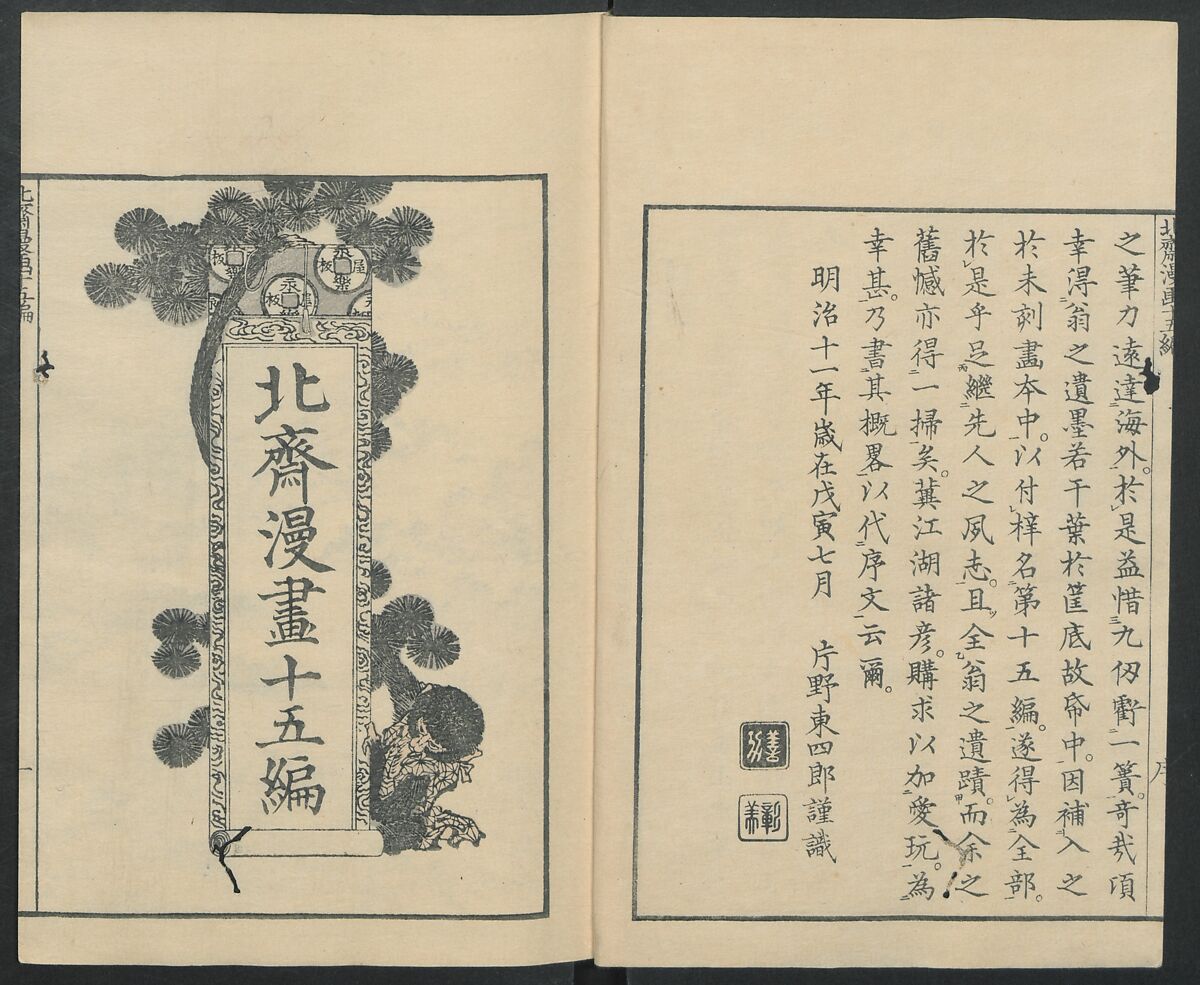 之筆力遠達海外。於是益惜九仭虧一簣。奇哉項
幸得翁之遺墨若干葉於筐底故帋中。因補入之
於未刻畵本中。以付梓名第十五編。遂得為全部。
於是乎足繼先人之夙志。且全翁之遺蹟。而余之
舊憾亦得一掃矣。冀江湖諸彦。購求以加愛玩。為
幸甚。乃書其概畧以代序文云爾。
明治十一年歲在戊寅七月　片野東四郎謹識
北齋漫畵十五編
序
北齋漫畫十五編
永樂
屋板
一